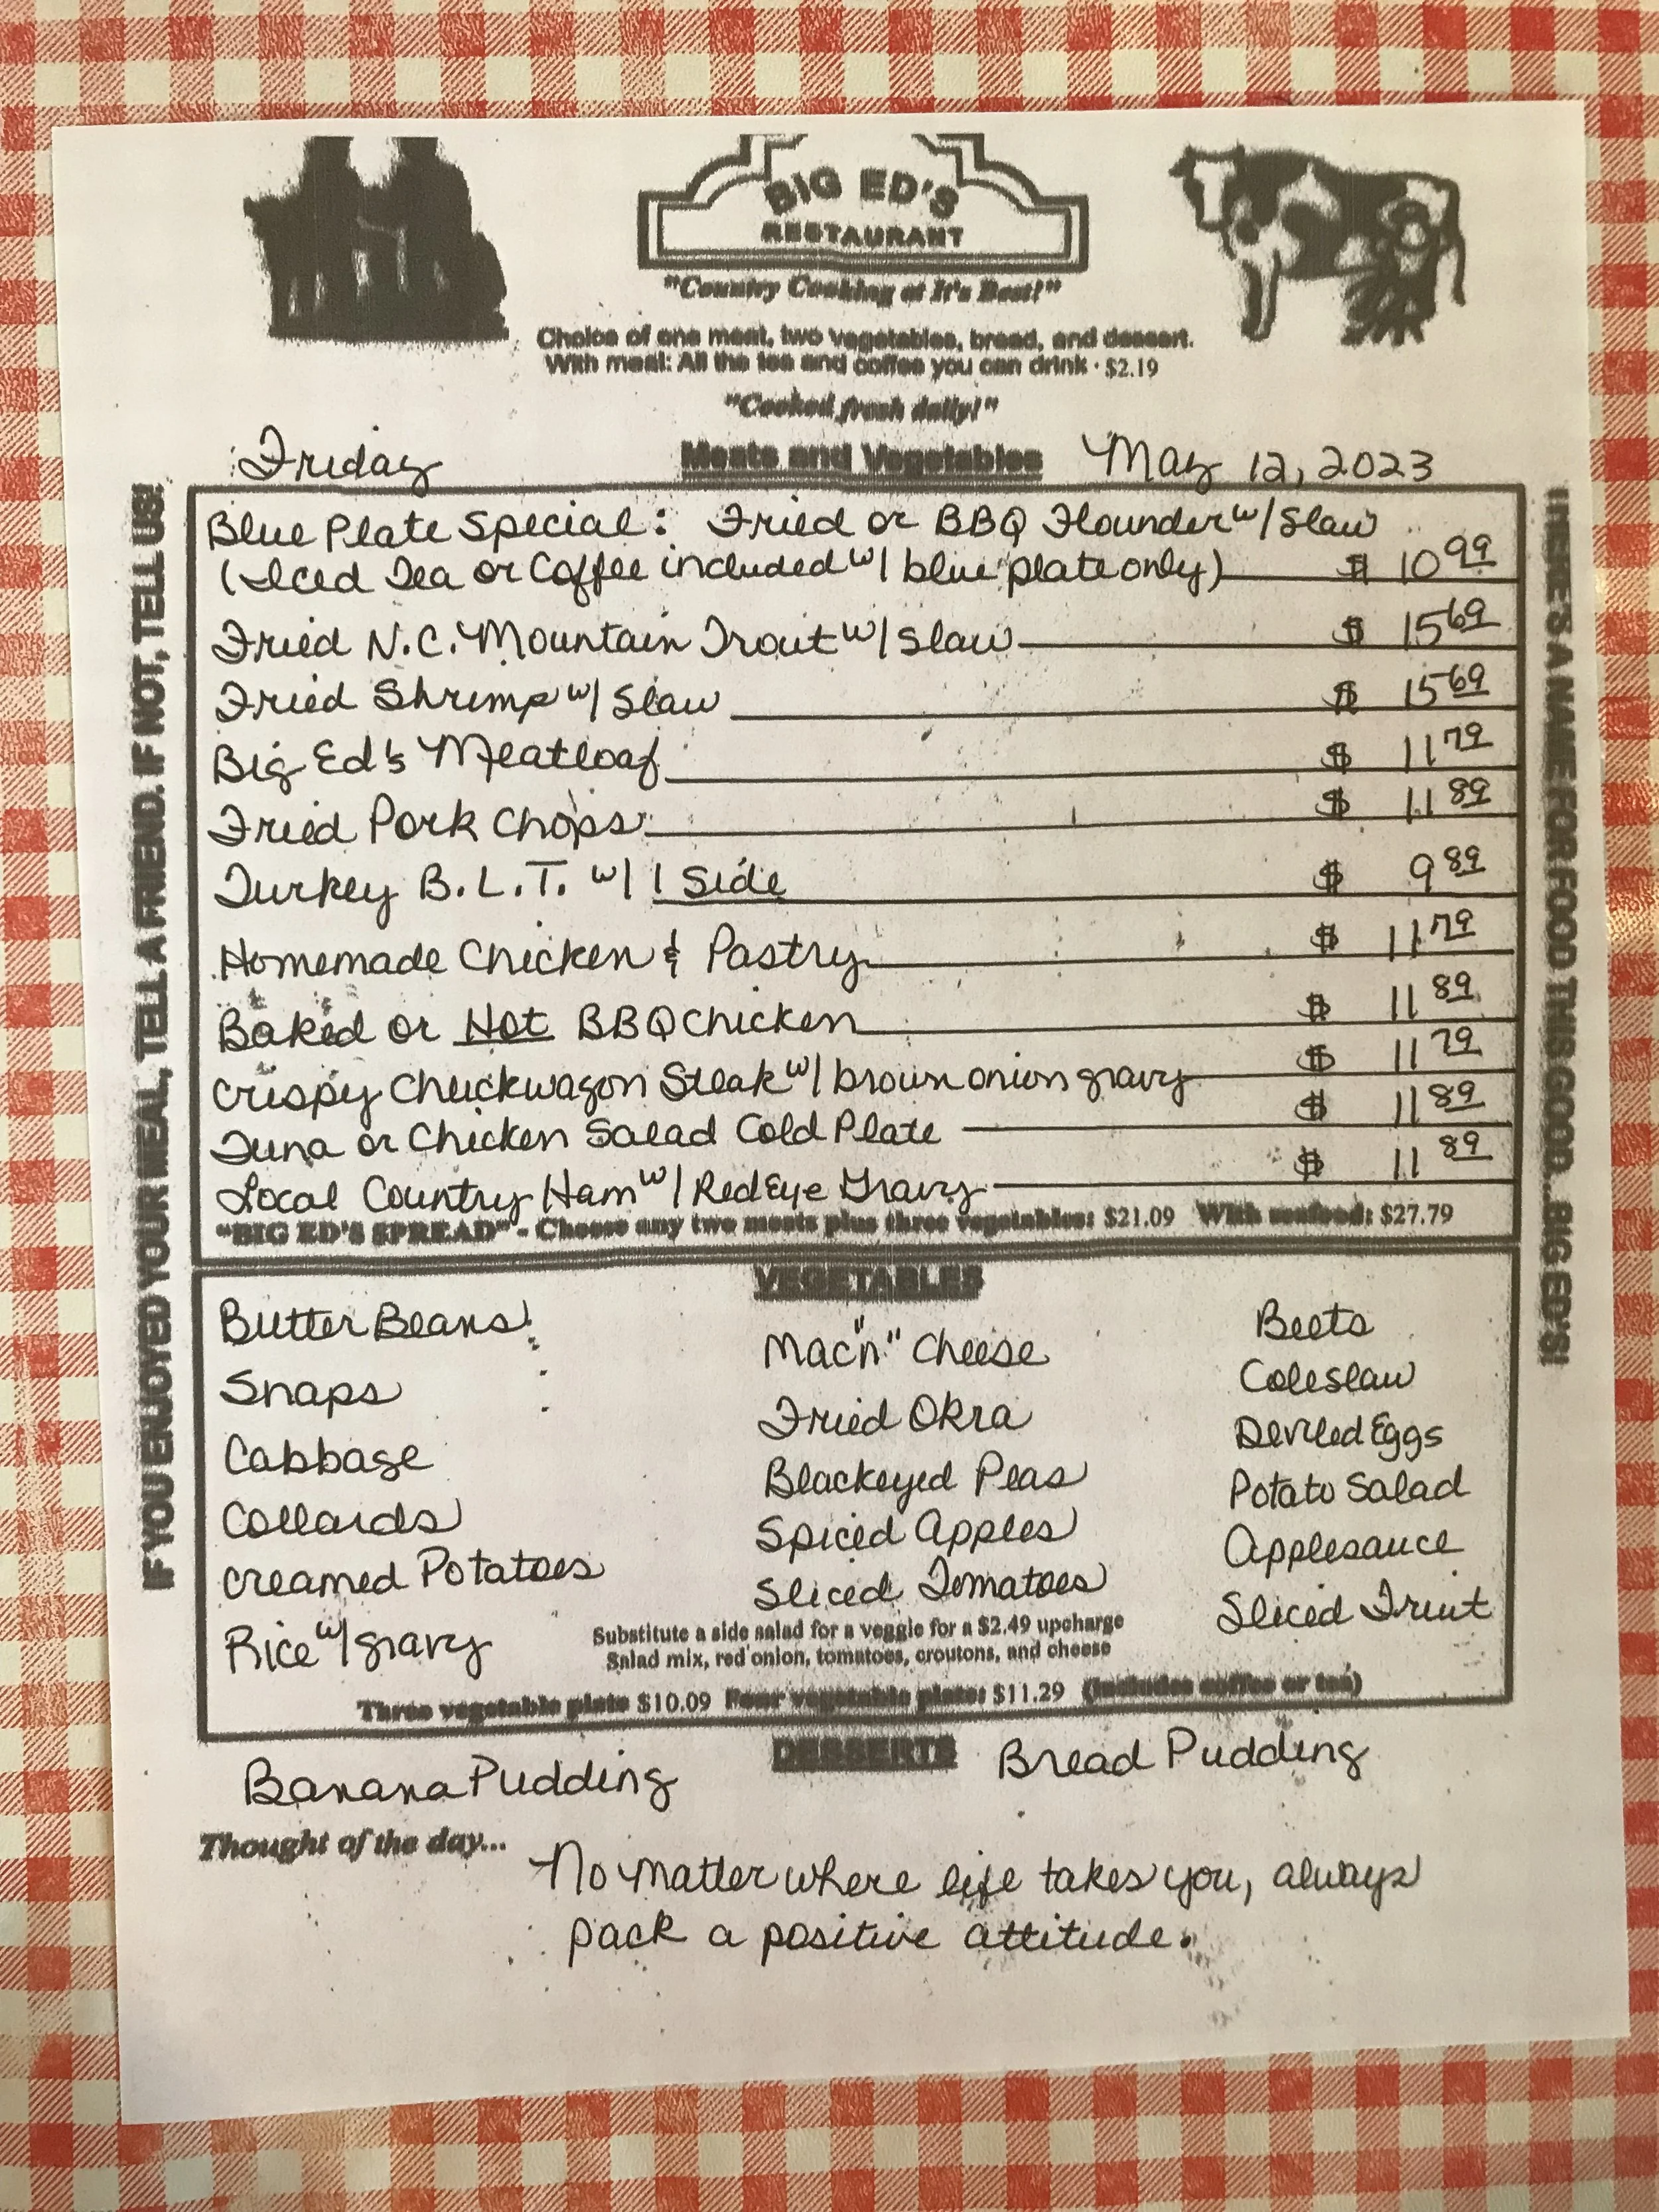 BIG ED'S
RESTAURANT
"Country Cooking at It's Best!"
Choice of one meat, two vegetables, bread, and dessert.
With meal: All the tea and coffee you can drink · $2.19
"Cooked fresh daily!"
Friday Meats and Vegetables May 12, 2023
Blue Plate Special: Fried or BBQ Flounder w/ Slaw
(Iced Tea or Coffee included w/ blue plate only) $ 10 99
Fried N.C. Mountain Trout w/ Slaw $ 15 69
Fried Shrimp w/ Slaw $ 15 69
Big Ed's Meatloaf $ 11 79
Fried Pork Chops $ 11 89
Turkey B.L.T. w/ 1 Side $ 9 89
Homemade Chicken & Pastry $ 11 79
Baked or Hot BBQ Chicken $ 11 89
Crispy Chuckwagon Steak w/ brown onion gravy $ 11 79
Tuna or Chicken Salad Cold Plate $ 11 89
Local Country Ham w/ Red Eye Gravy $ 11 89
"BIG ED'S SPREAD" - Choose any two meats plus three vegetables: $21.09 With seafood: $27.79
VEGETABLES
Butter Beans
Snaps
Cabbage
Collards
Creamed Potatoes
Rice w/ gravy
Mac "n" Cheese
Fried Okra
Blackeyed Peas
Spiced Apples
Sliced Tomatoes
Beets
Coleslaw
Deviled Eggs
Potato Salad
Applesauce
Sliced Fruit
Substitute a side salad for a veggie for a $2.49 upcharge
Salad mix, red onion, tomatoes, croutons, and cheese
Three vegetable plate $10.09 Four vegetable plate: $11.29 (Includes coffee or tea)
DESSERTS
Banana Pudding
Bread Pudding
Thought of the day...
No matter where life takes you, always
pack a positive attitude.
IF YOU ENJOYED YOUR MEAL, TELL A FRIEND. IF NOT, TELL US!
THERE'S A NAME FOR FOOD THIS GOOD...BIG ED'S!